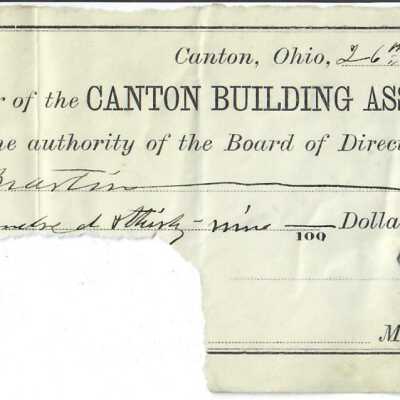 Canton, Ohio, 26
r of the CANTON BUILDING ASS
e authority of the Board of Direc
Martin
ndred & thirty-nine — Dolla
100
M